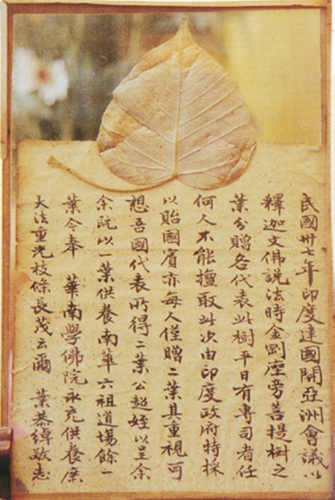 民國卅七年印度達國開亞洲會議以
釋迦文佛說法時金剛座旁菩提樹之
葉分贈各代表此樹平日有專司者任
何人不能擅取此次由印度政府特採
以貽國賓亦每人僅贈二葉其重視可
想吾國代表所得二葉公超姪以呈余
余既以一葉供養南華六祖道場餘一
葉今奉 華南學佛院永充供養庶
大法重光枝條長茂云爾 葉恭綽敬志